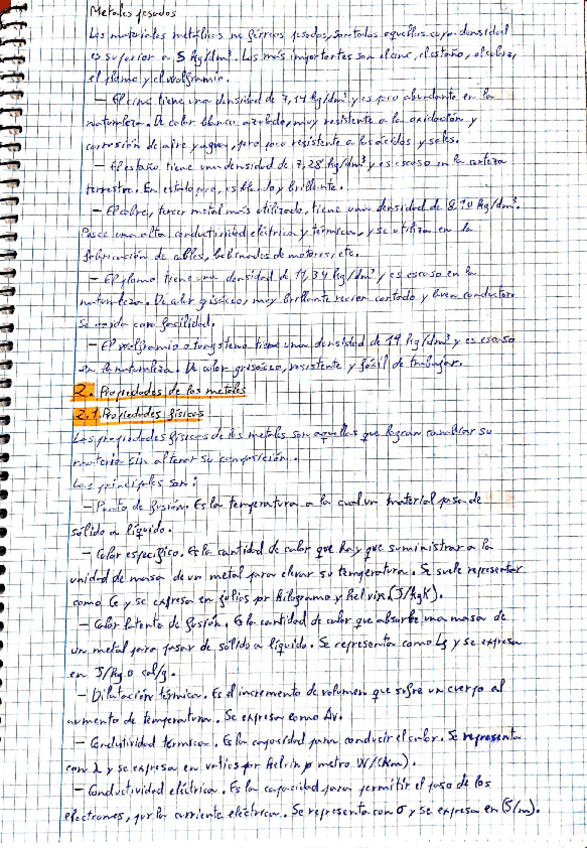 Metales pesados
Los materiales metálicos no férreos pesados, son todos aquellos cuya densidad
es superior a 5 kg/dm³. Los más importantes son el cinc, el estaño, el cobre,
el plomo y el wolframio.
— El cinc tiene una densidad de 7,14 kg/dm³ y es poco abundante en la
naturaleza. De color blanco azulado, muy resistente a la oxidación y
corrosión de aire y agua, pero poco resistente a los ácidos y sales.
— El estaño tiene una densidad de 7,28 kg/dm³ y es escaso en la corteza
terrestre. En estado puro, es blando y brillante.
— El cobre, tercer metal más utilizado, tiene una densidad de 8,90 kg/dm³.
Posee una alta conductividad eléctrica y térmica, y se utiliza en la
fabricación de cables, bobinados de motores, etc.
— El plomo tiene una densidad de 11,34 kg/dm³ y es escaso en la
naturaleza. De color grisáceo, muy brillante recien cortado y buen conductor.
Se oxida con facilidad.
— El wolframio o tungsteno tiene una densidad de 19 kg/dm³ y es escaso
en la naturaleza. De color grisáceo, resistente y fácil de trabajar.
2. Propiedades de los metales
2.1. Propiedades físicas
Las propiedades físicas de los metales son aquellas que logran cambiar su
materia sin alterar su composición.
Las principales son:
— Punto de fusión. Es la temperatura a la cual un material pasa de
sólido a líquido.
— Calor específico. Es la cantidad de calor que hay que suministrar a la
unidad de masa de un metal para elevar su temperatura. Se suele representar
como Ce y se expresa en julios por kilogramo y kelvin (J/kgK).
— Calor latente de fusión. Es la cantidad de calor que absorbe una masa de
un metal para pasar de sólido a líquido. Se representa como Lf y se expresa
en J/kg o cal/g.
— Dilatación térmica. Es el incremento de volumen que sufre un cuerpo al
aumento de temperatura. Se expresa como Δv.
— Conductividad térmica. Es la capacidad para conducir el calor. Se representa
con λ y se expresa en vatios por kelvin metro W/(km).
— Conductividad eléctrica. Es la capacidad para permitir el paso de los
electrones, por la corriente eléctrica. Se representa con σ y se expresa en (S/m).